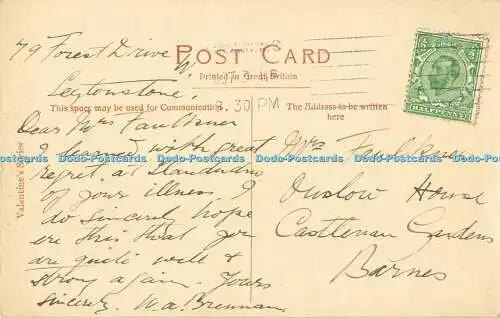 79 Forest Drive W
Leytonstone
POST CARD
Printed in Great Britain
This space may be used for Communication.
The Address to be written
here
8.30 PM
HALFPENNY
Valentine's Series
Dear Mrs Faulkner
I learned with great
regret, at
of your illness. I
do sincerely hope
ere this that you
are quite well &
strong again. Yours
sincerely. W.A. Brennan
Mrs Faulkner
Onslow House
Castlenau Gardens
Barnes
Dodo-Postcards Dodo-Postcards Dodo-Postcards Dodo-Postcards Dodo-Postcards